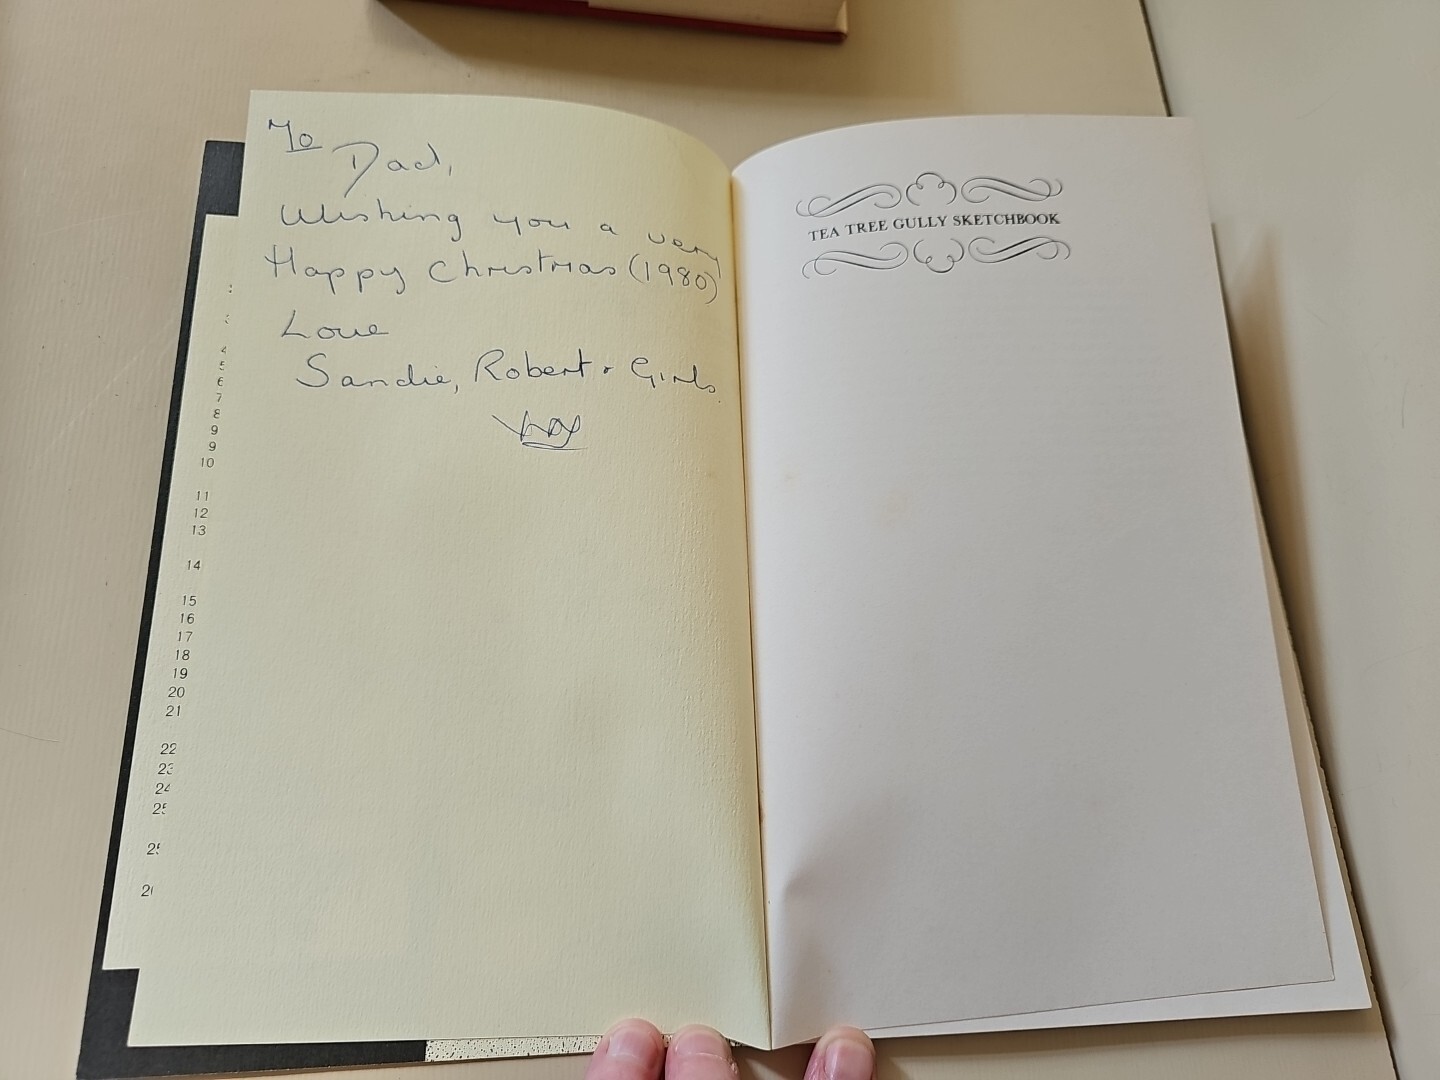 To
Dad,
Wishing you a very
Happy Christmas (1980)
Love
Sandie, Robert + Girls.
xox
TEA TREE GULLY SKETCHBOOK
4
5
6
7
8
9
9
10
11
12
13
14
15
16
17
18
19
20
21
22
23
24